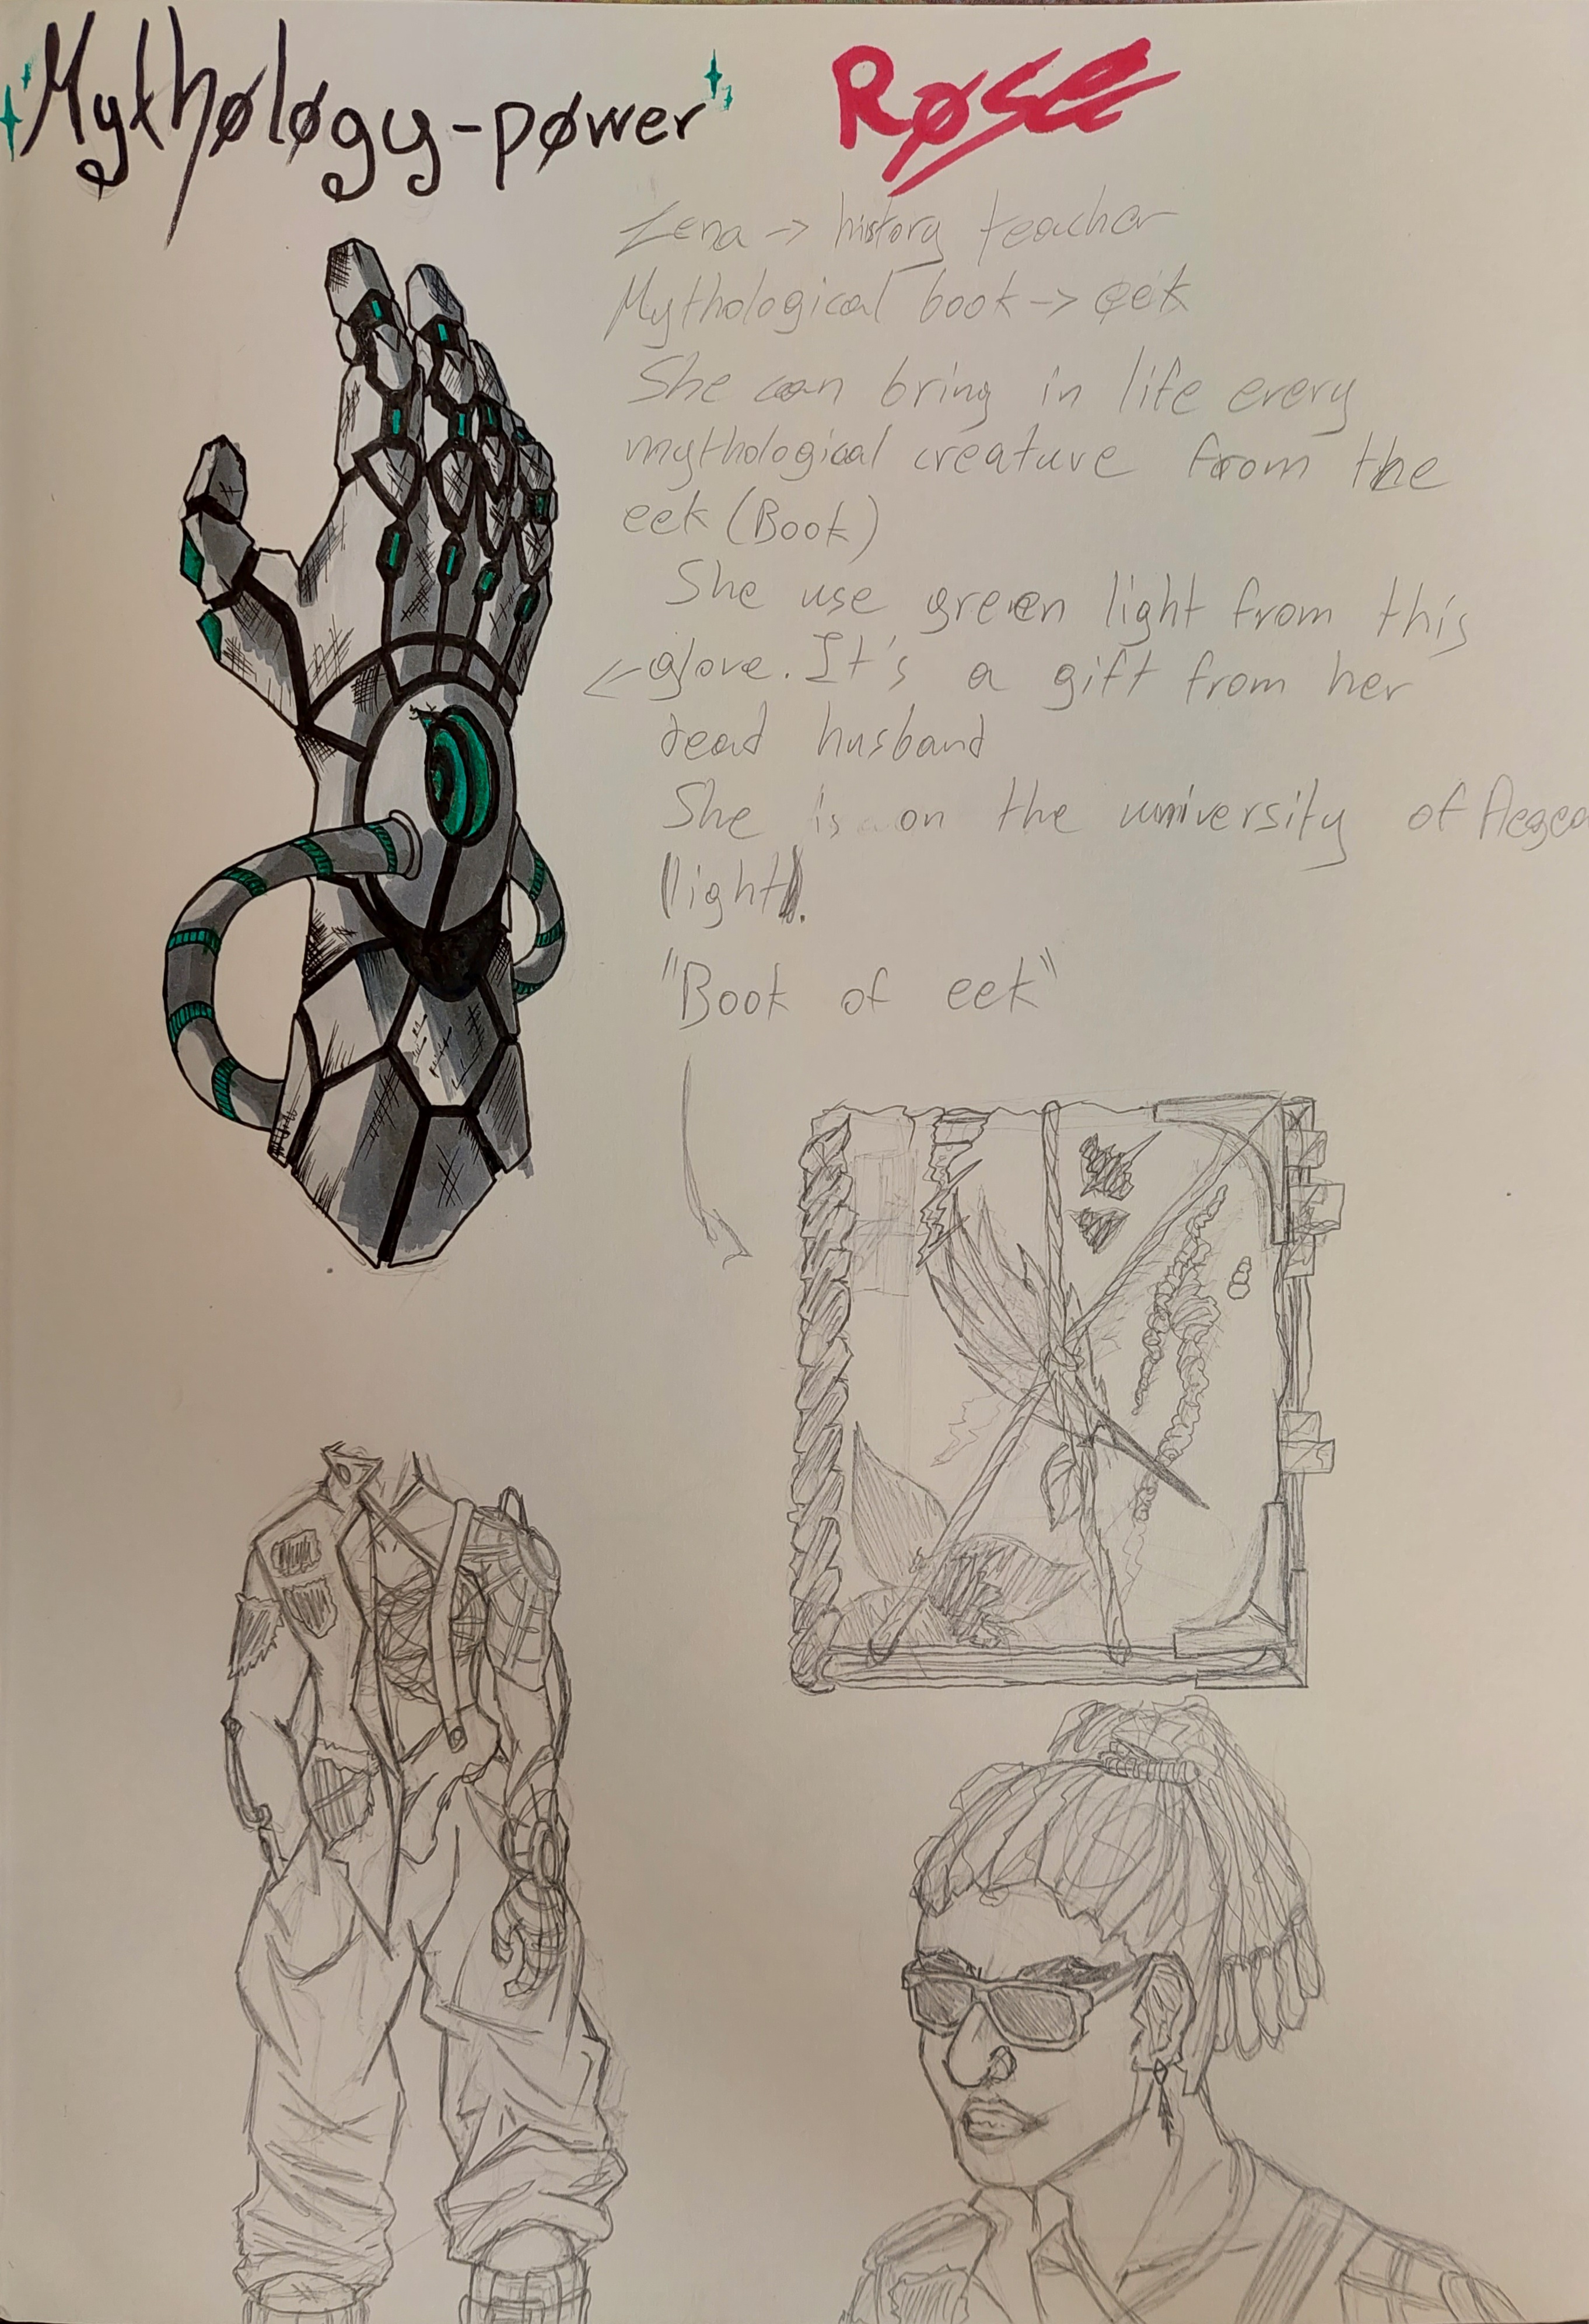 Mythøløgy-pøwer
Røse
Zena -> history teacher
Mythological book -> eek
She can bring in life every
mythological creature from the
eek (Book)
She use green light from this
<- glove. It's a gift from her
dead husband
She is on the university of Aegea
(light).
"Book of eek"